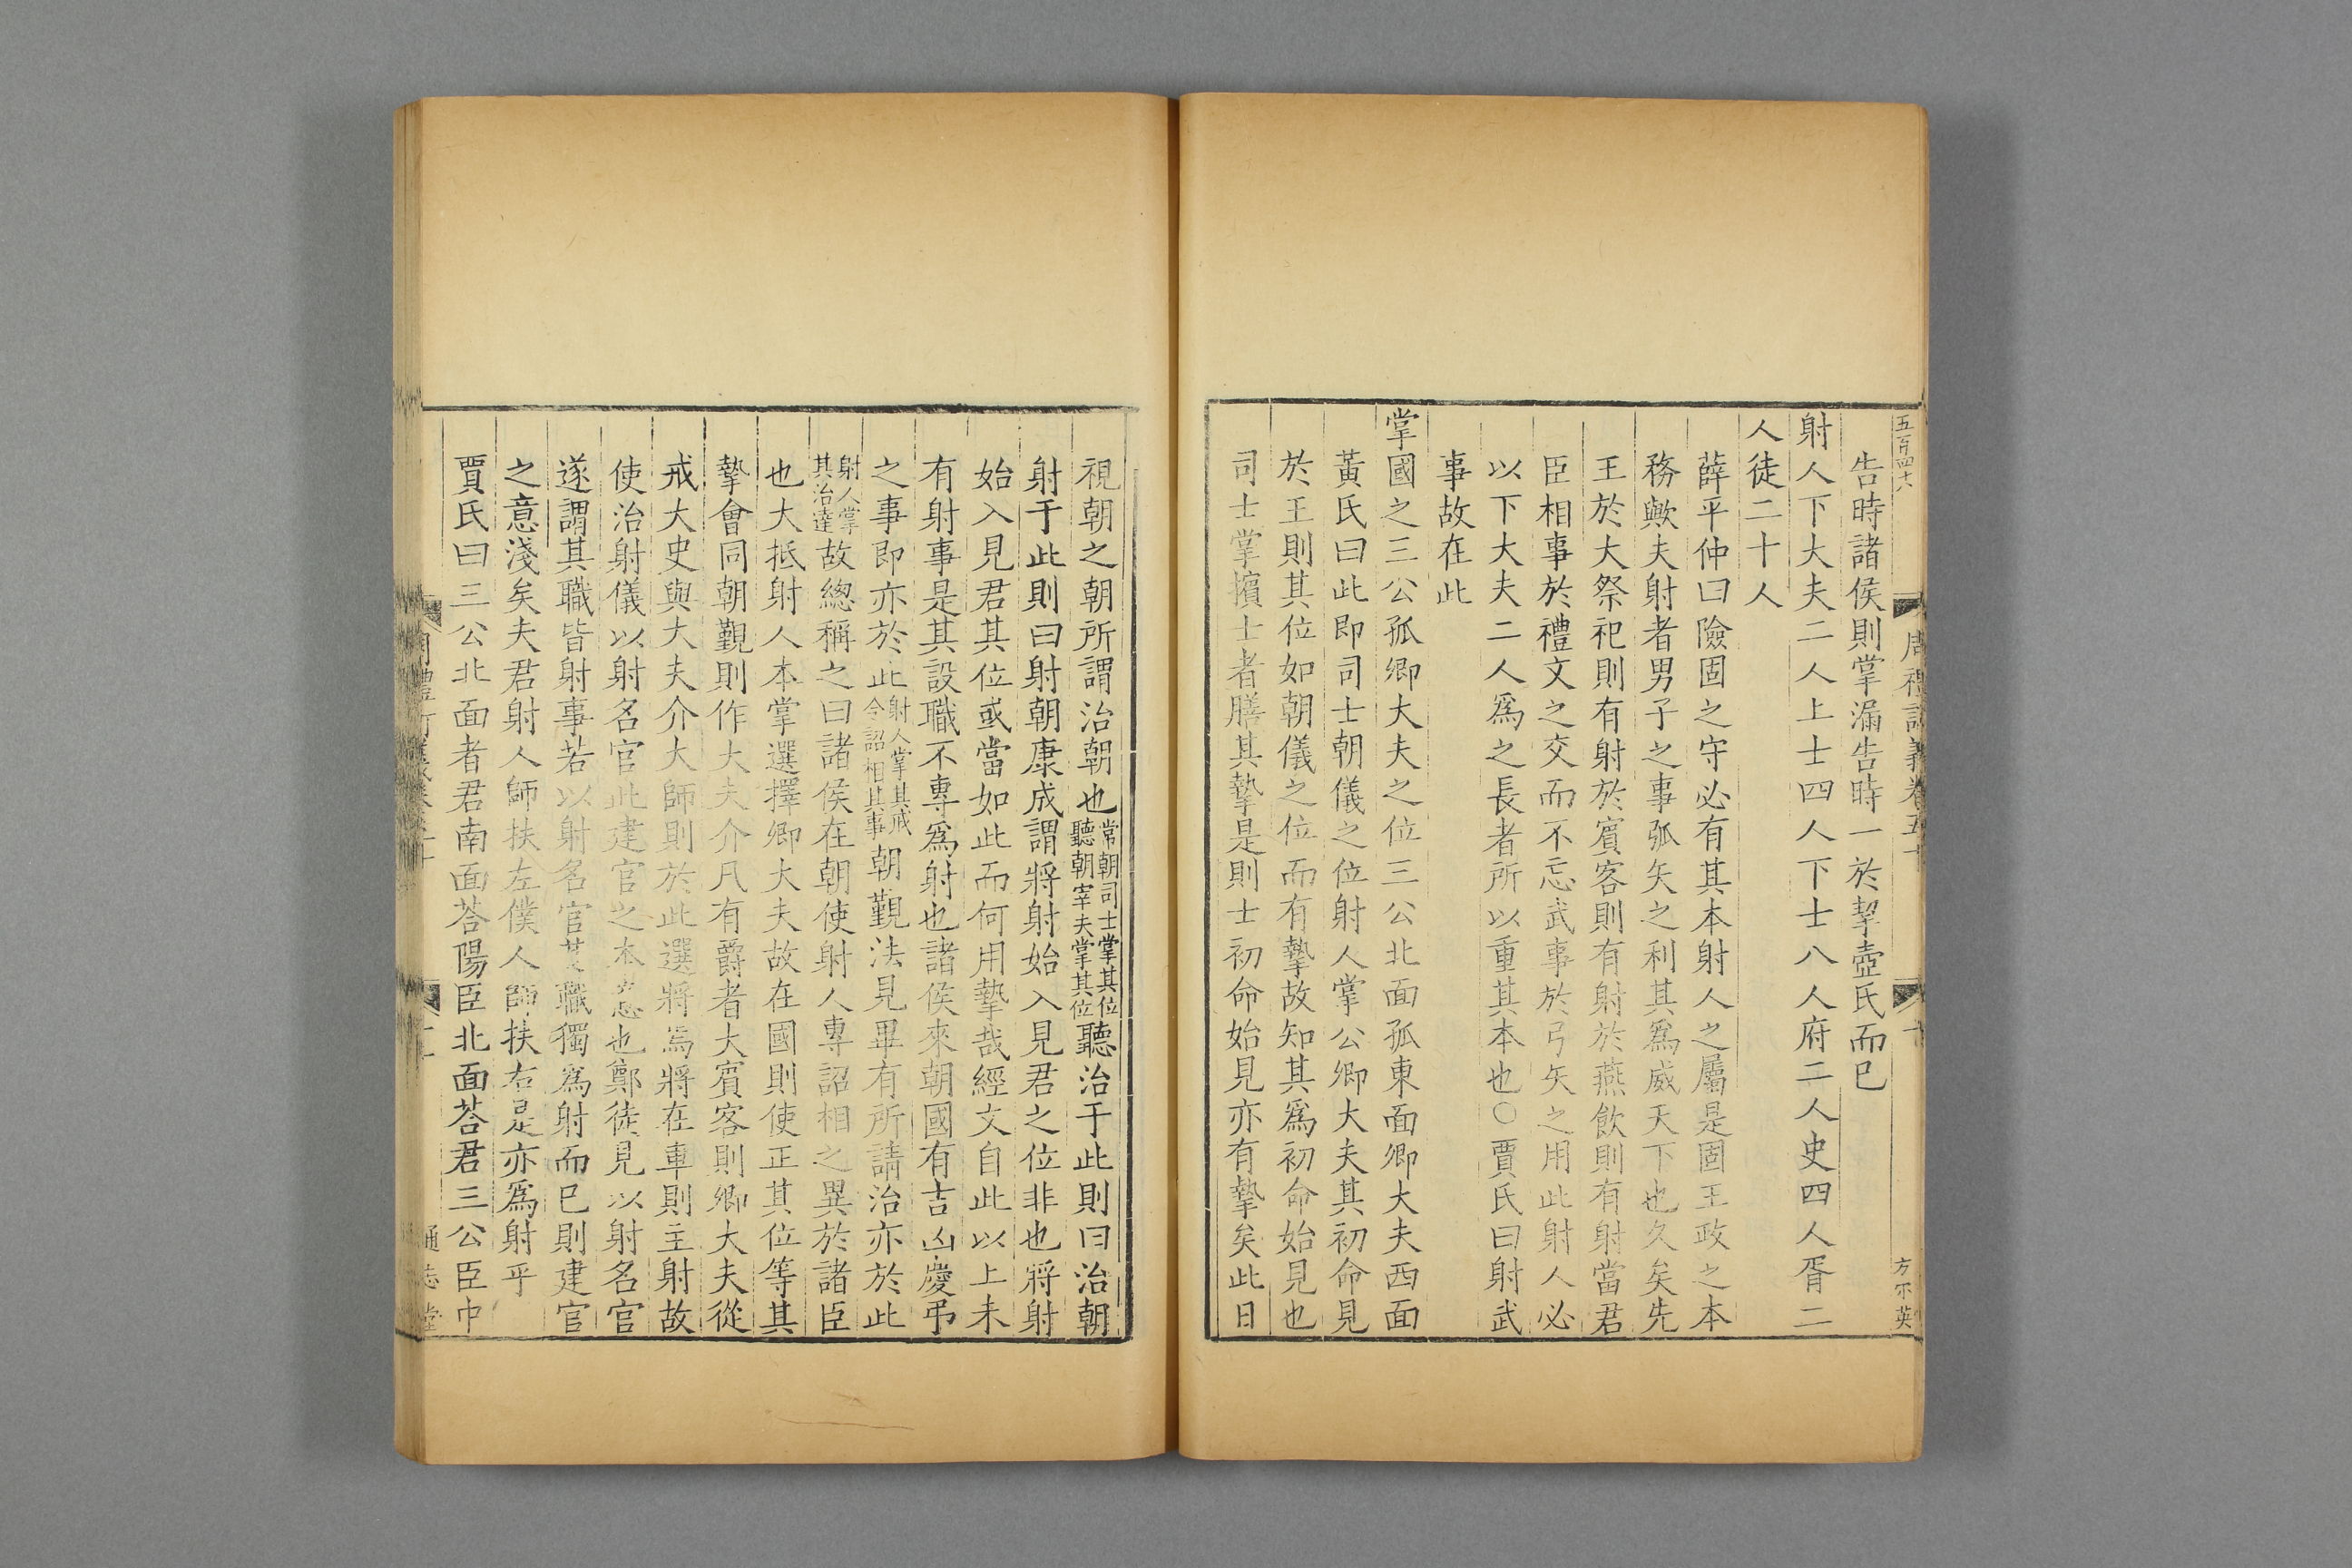 五百四十八
周禮訂義卷五十
方不英
告時諸侯則掌漏告時一於挈壺氏而已
射人下大夫二人上士四人下士八人府二人史四人胥二
人徒二十人
薛平仲曰險固之守必有其本射人之屬是固王政之本
務歟夫射者男子之事弧矢之利其爲威天下也久矣先
王於大祭祀則有射於賓客則有射於燕飲則有射當君
臣相事於禮文之交而不忘武事於弓矢之用此射人必
以下大夫二人爲之長者所以重其本也○賈氏曰射武
事故在此
掌國之三公孤卿大夫之位三公北面孤東面卿大夫西面
黃氏曰此即司士朝儀之位射人掌公卿大夫其初命見
於王則其位如朝儀之位而有摯故知其爲初命始見也
司士掌擯士者膳其摯是則士初命始見亦有摯矣此曰
視朝之朝所謂治朝也常朝司士掌其位聽朝宰夫掌其位聽治于此則曰治朝
射于此則曰射朝康成謂將射始入見君之位非也將射
始入見君其位或當如此而何用摯哉經文自此以上未
有射事是其設職不專爲射也諸侯來朝國有吉凶慶弔
之事即亦於此射人掌其戒令詔相其事朝覲法見畢有所請治亦於此
射人掌其治達故總稱之曰諸侯在朝使射人專詔相之異於諸臣
也大抵射人本掌選擇卿大夫故在國則使正其位等其
摯會同朝覲則作大夫介凡有爵者大賓客則卿大夫從
戒大史與大夫介大師則於此選將焉將在車則主射故
使治射儀以射名官此建官之本意也鄭徒見以射名官
遂謂其職皆射事若以射名官其職獨爲射而已則建官
之意淺矣夫君射人師扶左僕人師扶右是亦爲射乎
賈氏曰三公北面者君南面荅陽臣北面荅君三公臣中
通志堂